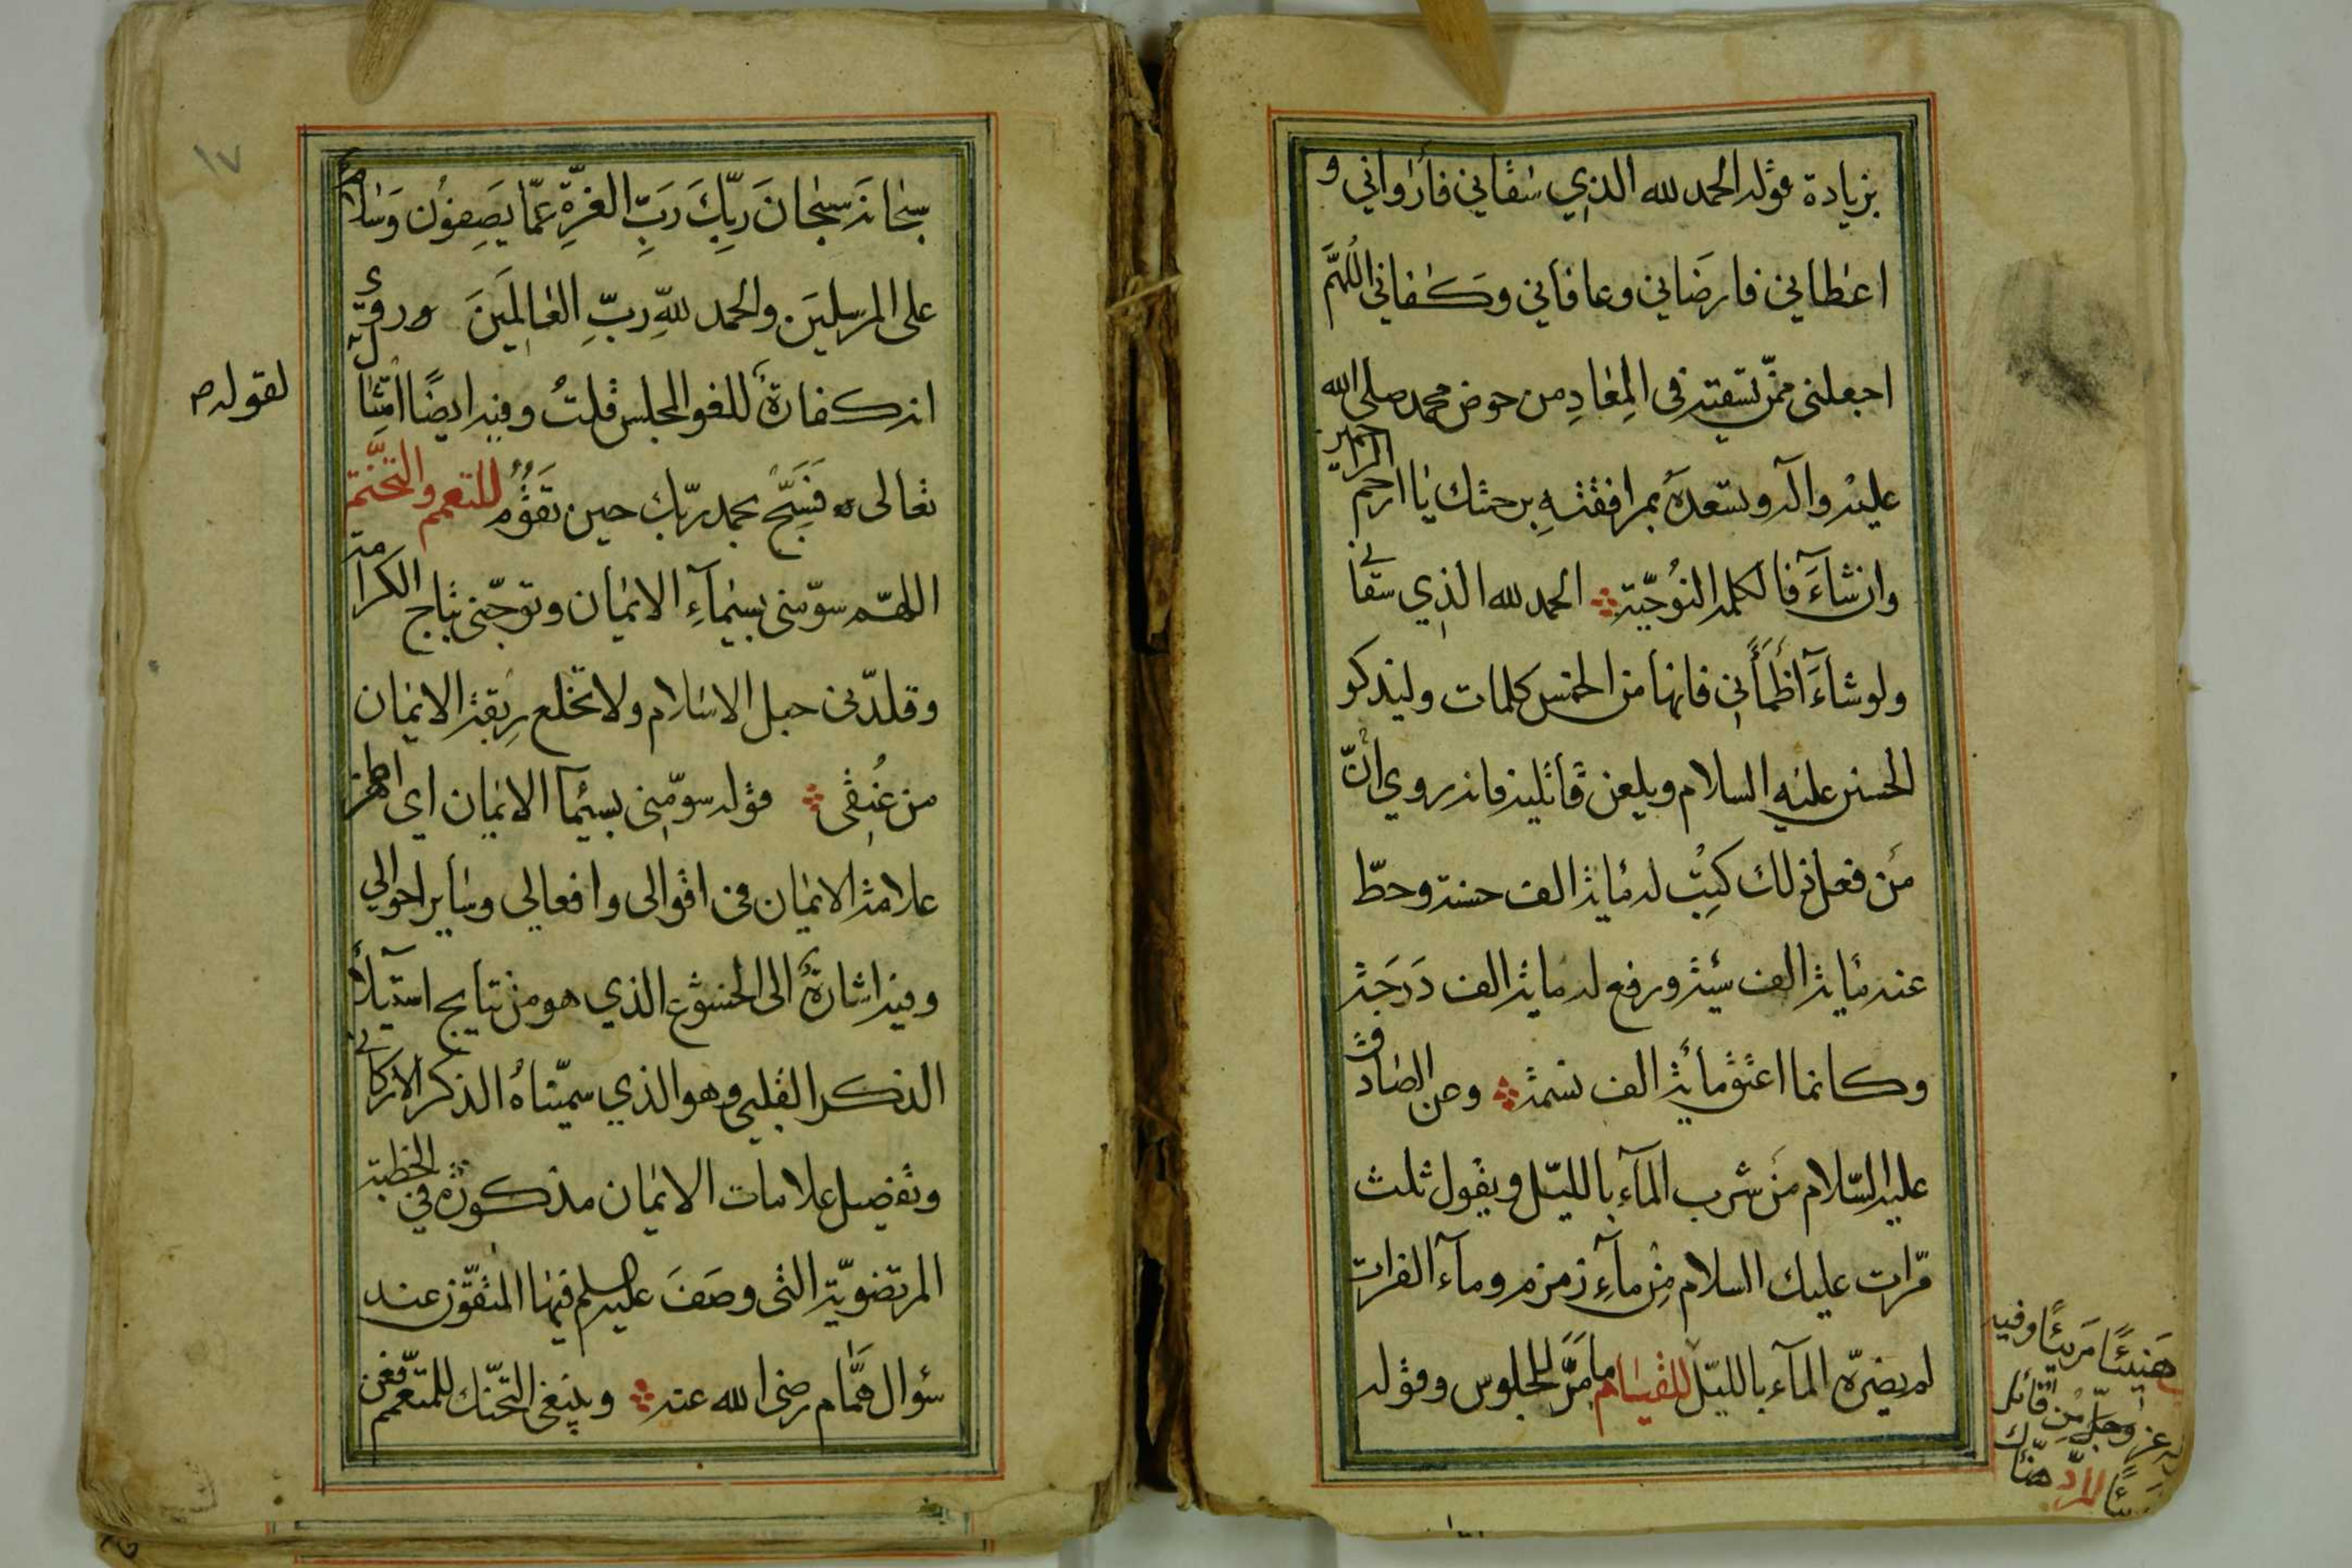 بزيادة قوله الحمد لله الذي سقاني فأرواني و
اعطاني فارضاني وعافاني وكفاني اللهم
اجعلني ممن تسقيه في المعاد من حوض محمد صلى الله
عليه وآله وتسعده بمرافقته برحمتك يا ارحم الراحمين
وان شاء فالكلمة النوحية الحمد لله الذي سقاني
ولو شاء أظمأني فانها من الخمس كلمات وليذكر
الحسين عليه السلام ويلعن قاتليه فانه روي أن
من فعل ذلك كتبت له مأية الف حسنة وحط
عنه مأية الف سيئة ورفع له مأية الف درجة
وكانما اعتق مأية الف نسمة وعن الصادق
عليه السلام من شرب الماء بالليل ويقول ثلث
مرات عليك السلام من ماء زمزم وماء الفرات
لم يضره الماء بالليل للقيام ما مر للجلوس وقوله
هنيئًا مريئًا وفيه
عز وجل من قائل
للرد هناك
سبحانه سبحان ربك رب العزة عما يصفون وسلام
على المرسلين والحمد لله رب العالمين وروي
انه كفارة للغو المجلس قلت وفيه ايضًا امتثال
لقوله
تعالى فسبح بحمد ربك حين تقوم للتعمم والتختم
اللهم سومني بسيماء الايمان وتوجني بتاج الكرامة
وقلدني حبل الاسلام ولا تخلع ربقة الايمان
من عنقي قوله سومني بسيما الايمان اي اظهر
علامة الايمان في اقوالي وافعالي وساير احوالي
وفيه اشارة الى الخشوع الذي هو من نتايج استيلاء
الذكر القلبي وهو الذي سميناه الذكر الاركاني
وتفصيل علامات الايمان مذكورة في الخطبة
المرتضوية التي وصف عليه السلم فيها المتقين عند
سؤال همام رضي الله عنه وينبغي التحنك للمتعمم فعن